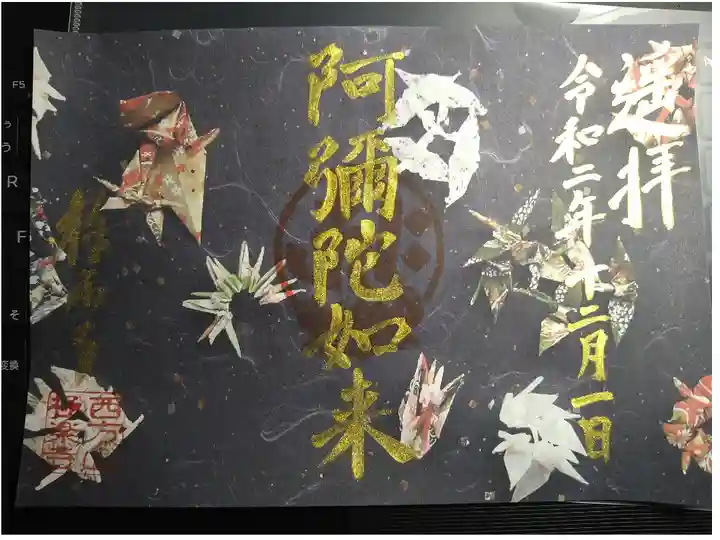 遙拝
令和二年十二月一日
阿彌陀如来
F5
R
F
そ
変換